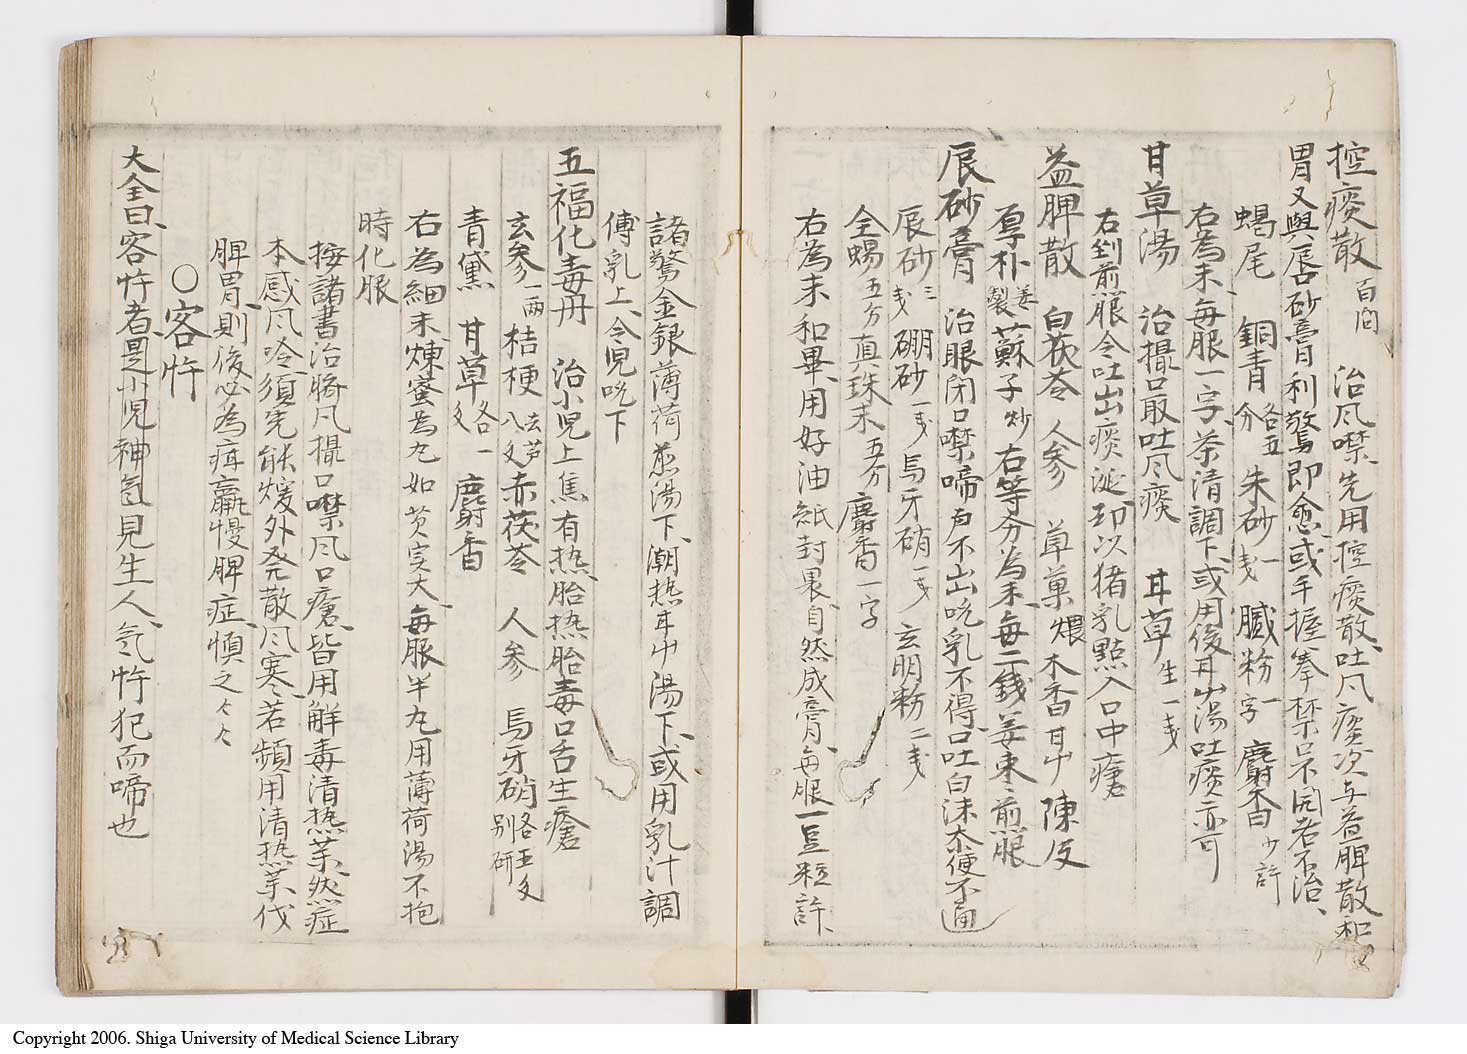 控痰散 百问 治风噤、先用控痰散、吐风痰次与益脾散和
胃又與辰砂膏利驚即愈、或手握拳禁口不闭者不治、
蝎尾 銅青各五分 朱砂一戋 膩粉一字 麝香少許
右為末、毎服一字、茶清調下、或用後甘屮湯吐痰亦可
甘草湯 治撮口最吐风痰 甘草生一戋
右剉煎服令吐出痰涎却以猪乳點入口中瘥
益脾散 白茯苓 人参 草菓煨 木香 甘屮 陳皮
厚朴姜製 蘇子炒 右等分為末、毎二錢姜枣煎服
辰砂膏 治眼閉口噤啼声不出吮乳不得、口吐白沫大便不通
辰砂三戋 硼砂一戋 馬牙硝一戋 玄明粉二戋
全蝎五分 真珠末五分 麝香一字
右為末和畢、用好油紙封裹、自然成膏、毎服一豆粒許、
諸驚金銀薄荷煎湯下、潮热甘屮湯下、或用乳汁調
傅乳上、令児吮下
五福化毒丹 治小児上焦有热、胎热胎毒口舌生瘡
玄参一兩 桔梗去芦八文 赤茯苓 人参 馬牙硝各五文別研
青黛 甘草各一文 麝香
右為細末、煉蜜為丸如芡実大、毎服半丸用薄荷湯不抱
時化服
按諸書治臍风撮口噤风口瘡、皆用解毒清热薬、然症
本感风冷、須先能煖外発散风寒、若頻用清热薬伐
脾胃、則後必為疳羸慢脾症慎之々々
〇客忤
大全曰、客忤者、是小児神氣見生人、气忤犯而啼也
Copyright 2006. Shiga University of Medical Science Library